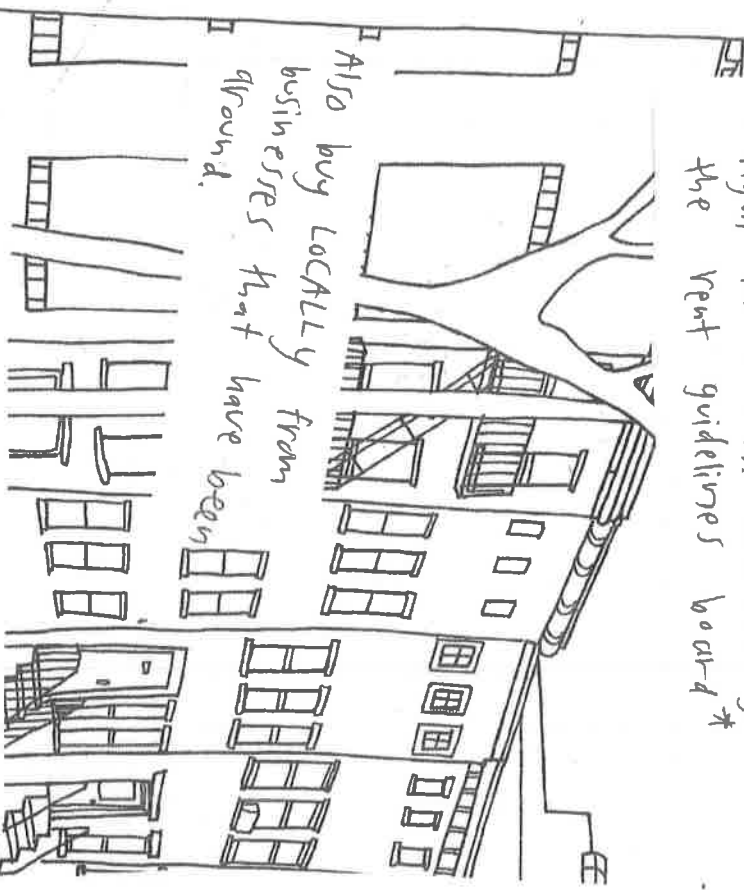 the rent guidelines board*
Also buy LOCALLY from
businesses that have been
around.